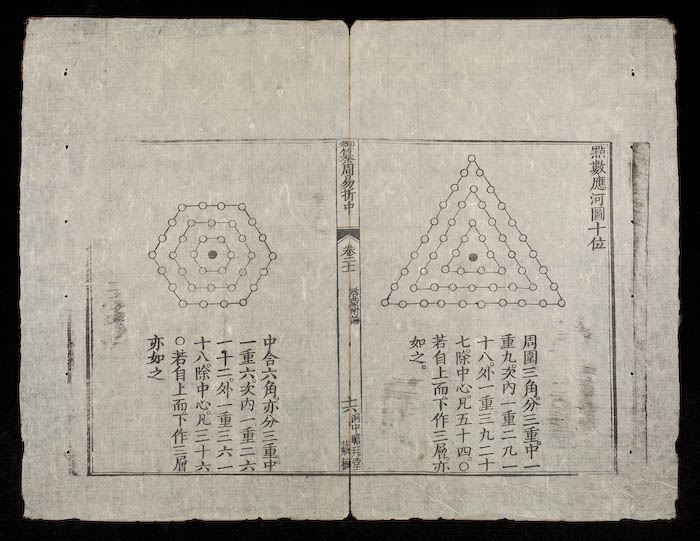 點數應河圖十位
周圍三角分三重中一
重九次內一重二九一
十八外一重三九二十
七除中心凡五十四〇
若自上而下作三層亦
如之。
御纂周易折中
卷二十一
啟蒙附論
十六
中含六角亦分三重中
一重六次內一重二六
一十二外一重三六一
十八除中心凡三十六
〇若自上而下作三層
亦如之